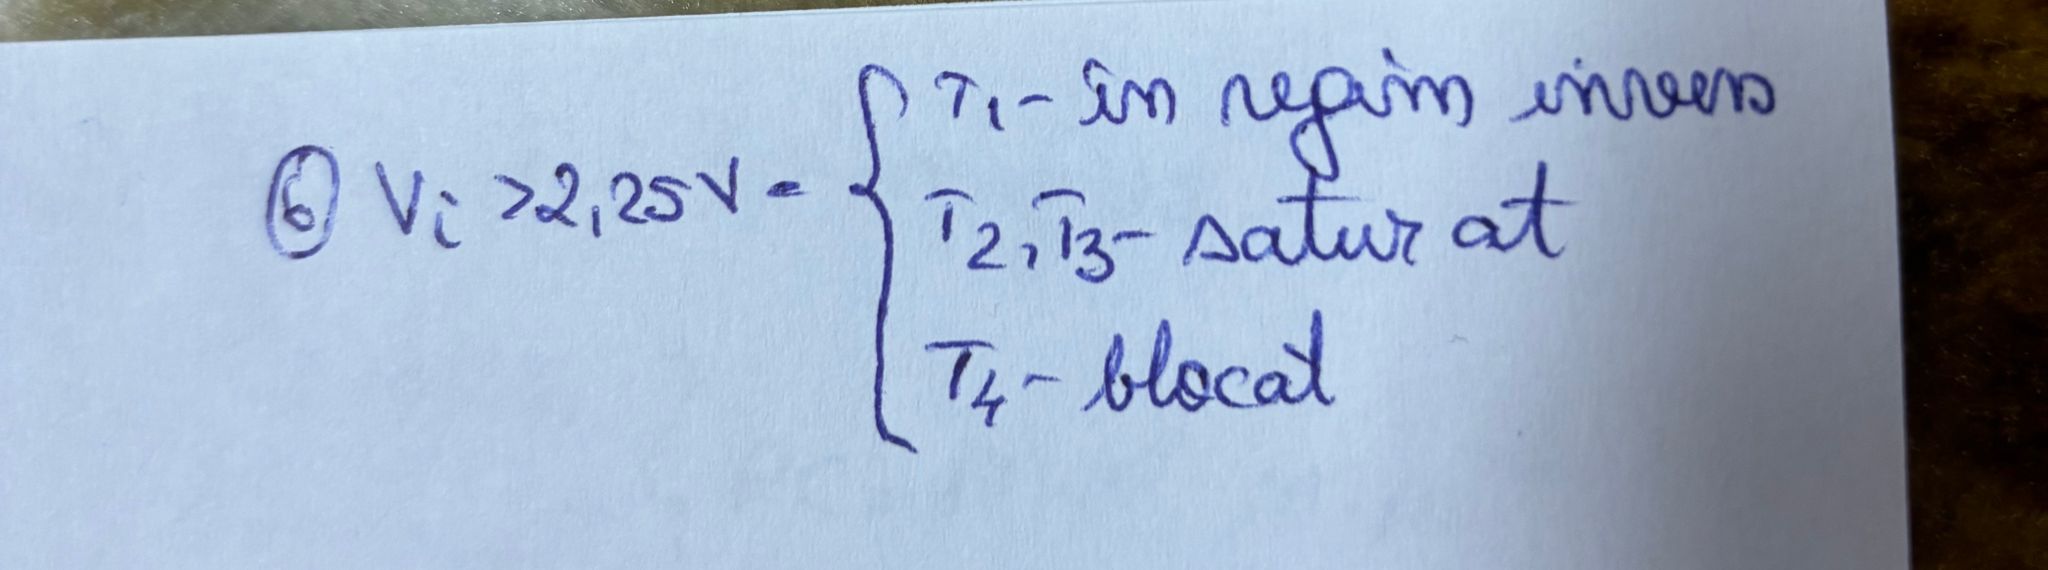 ⑥ Vi >2,25V - { T1 - în regim invers
T2, T3 - saturat
T4 - blocat